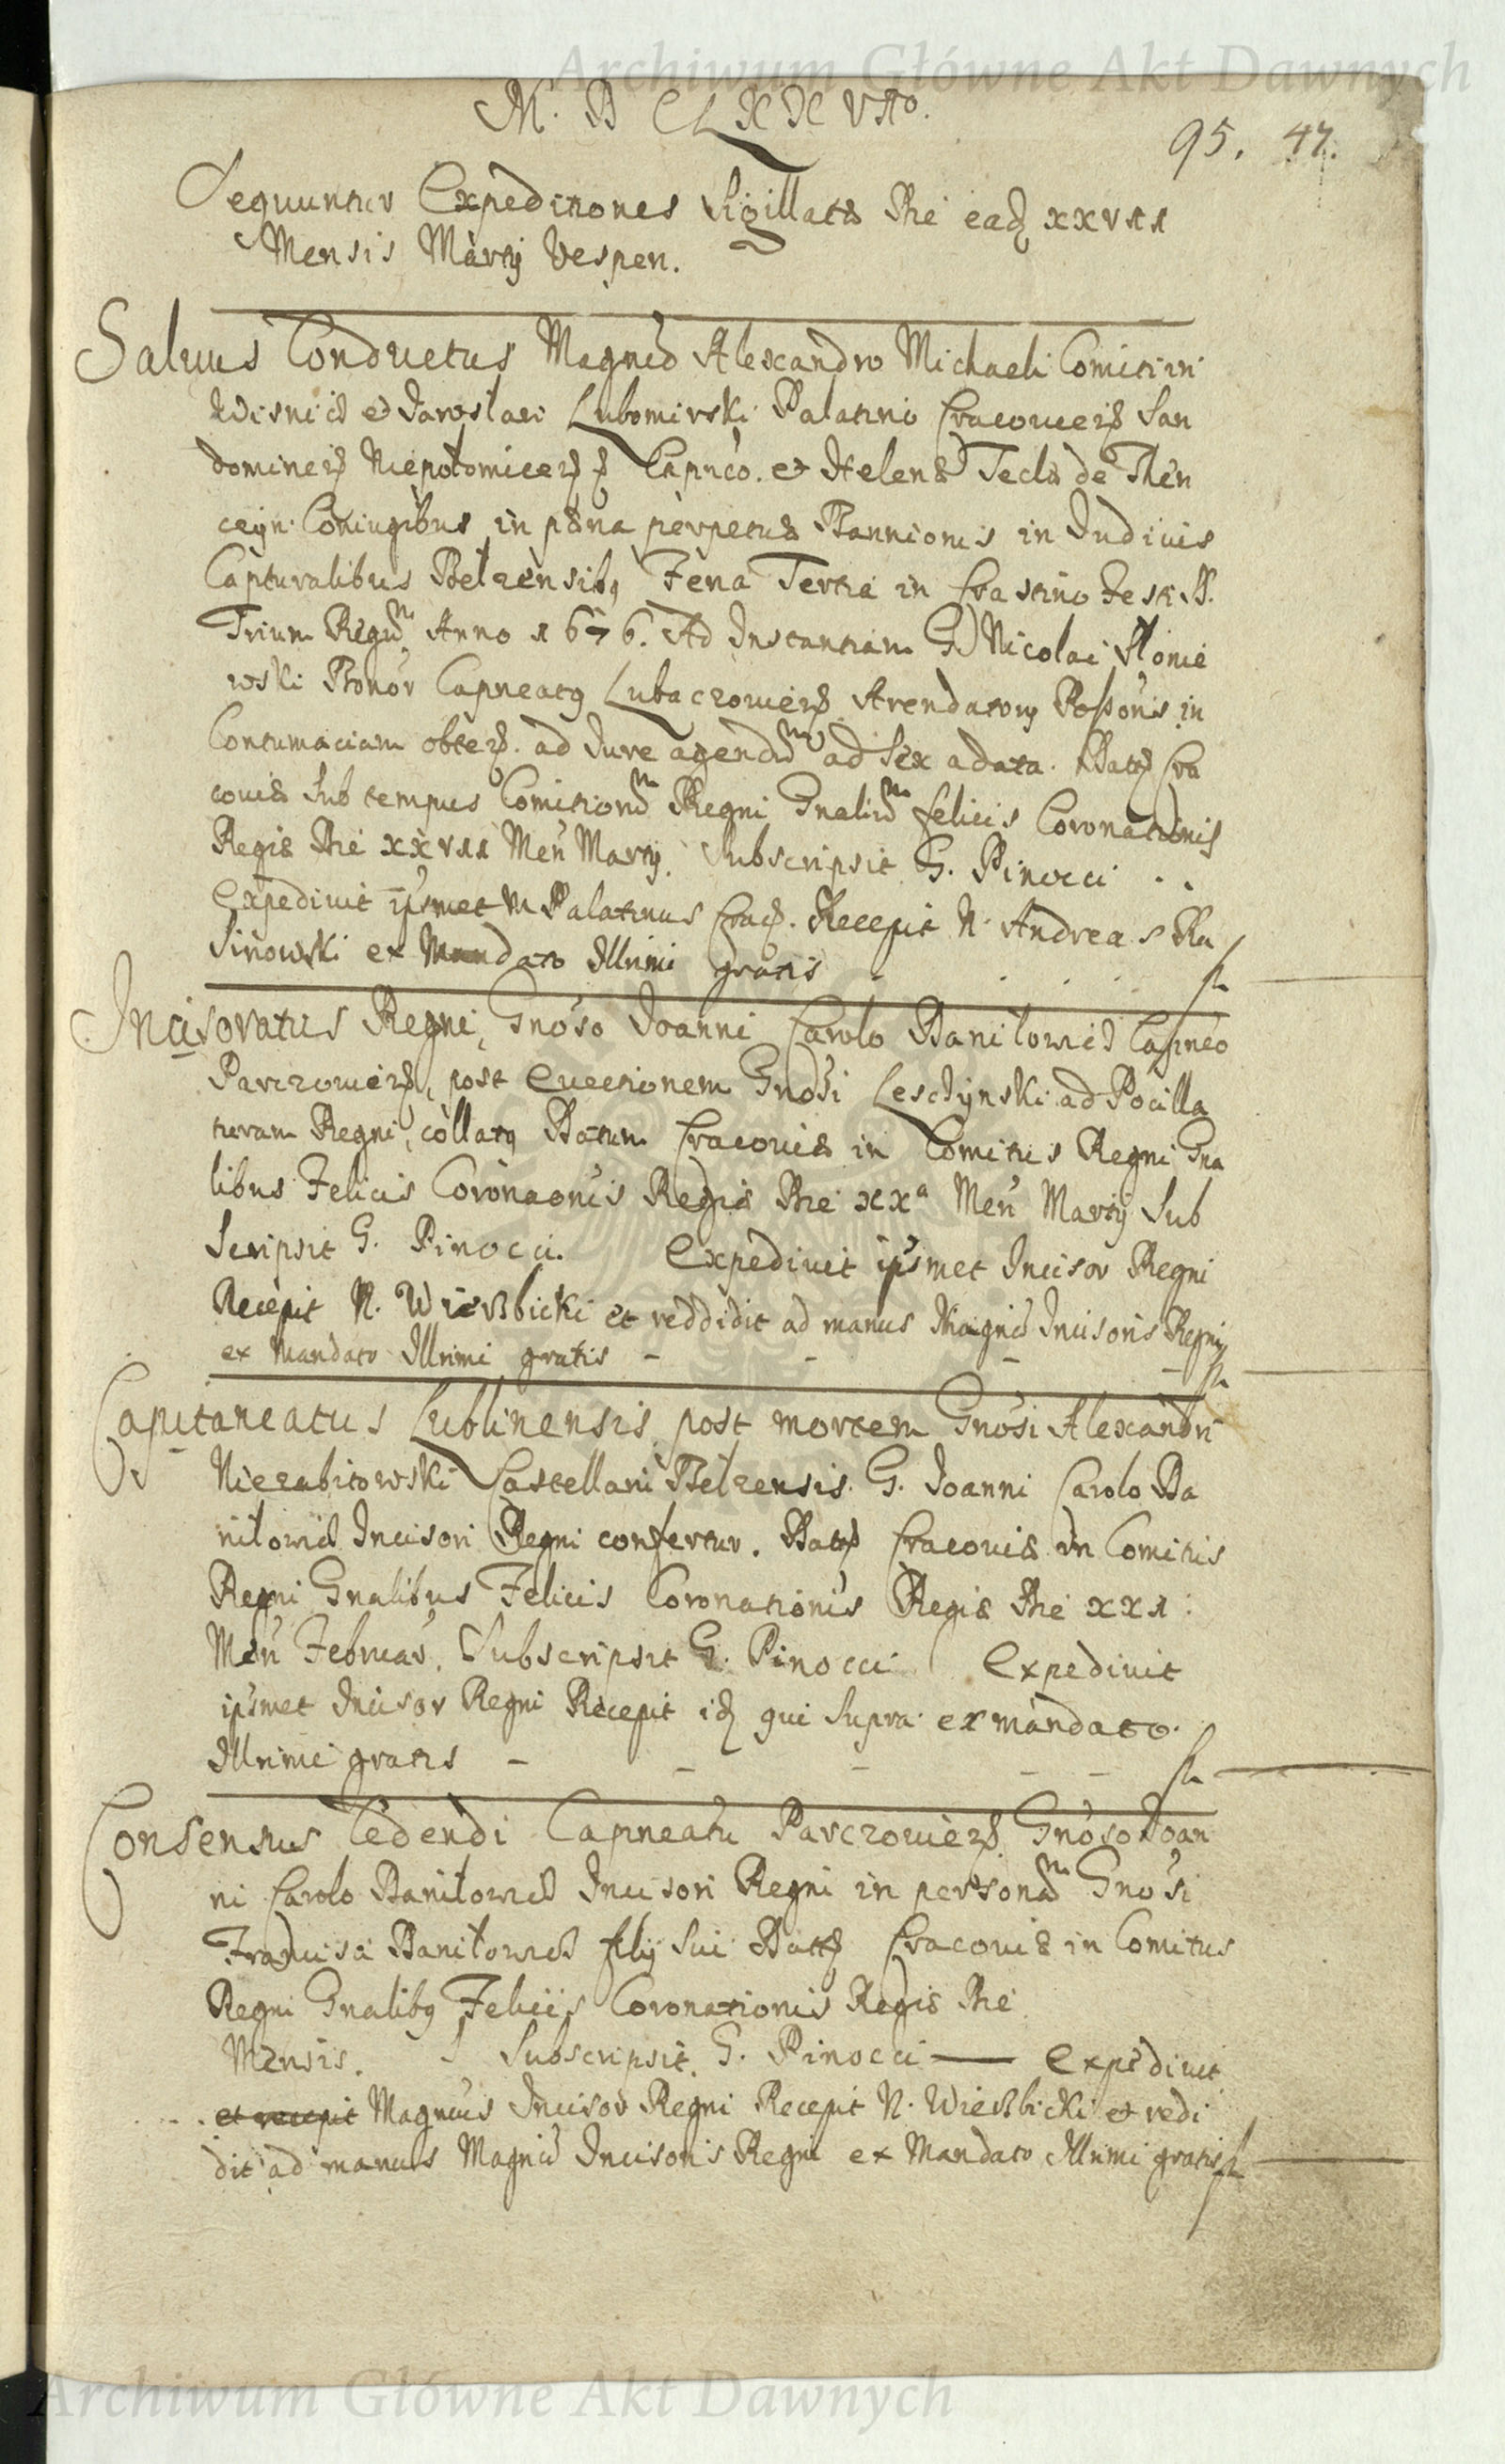 Archiwum Główne Akt Dawnych
M. D C L X X VIto.
95. 47.
Sequuntur Expeditiones Sigillatæ Die eadẽ xxvii
Mensis Martij Vesperi.
Salvus Conductus Magnco Alexandro Michaeli Comiti in
Wisnicz et Jaroslaw Lubomirski Palatino Cracovień San
domirień Niepolomiceń Capneo. et Helenæ Teclæ de Thęn
czyn Coniugibus in pœna perpetuæ Bannionis in Iudiciis
Capturalibus Belzensibq Feria Tertia in Crastino Festi S.
Trium Regũm Anno 1676. Ad Instantiam G. Nicolai Slonie
wski Bonor Capneatq Lubaczovień Arendatorq Possoris in
Contumaciam obteń. ad Iure agendũm ad Sex a data. Datũ Cra
coviæ Sub tempus Comitiorũm Regni Gnaliũm felicis Coronationis
Regiæ Die xxvii Meń Martij. Subscripsit G. Pinocci . .
Expedivit ipsmet M Palatinus Crac. Recepit N. Andreas Ra
sinowski ex Mandato Illrimi gratis
Incisoratus Regni, Gnoso Joanni Carolo Daniłowicz Capneo
Parczovień, post evectionem Gnosi Leschynski ad Pocilla
turam Regni, collatq Datum Cracoviæ in Comitiis Regni Gna
libus Felicis Coronaonis Regiæ Die xxa Meń Martij Sub
Scripsit G. Pinocci. Expedivit ipsmet Incisor Regni
Recepit N. Wierzbicki et reddidit ad manus Magnci Incisoris Regni
ex Mandato Illrimi gratis - - - -
Capitaneatus Lublinensis, post mortem Gnosi Alexandri
Niezabitowski Castellani Belzensis. G. Joanni Carolo Da
niłowicz Incisori Regni confertur. Datũ Cracoviæ in Comitiis
Regni Gnalibus Felicis Coronationis Regiæ Die xxi:
Meń Februar. Subscripsit G. Pinocci Expedivit
ipsmet Incisor Regni Recepit idẽ qui Supra ex mandato.
Illrimi gratis - - - - -
Consensus Cedendi Capneatu Parczovień Gnoso Joan
ni Carolo Daniłowicz Incisori Regni in personãm Gnosi
Francisci Daniłowicz filij Sui Datũ Cracoviæ in Comitiis
Regni Gnalibq Felicis Coronationis Regiæ Die
Mensis. Subscripsit. G. Pinocci — Expedivit
et recepit Magncus Incisor Regni Recepit N. Wierzbicki et redi
dit ad manus Magnci Incisoris Regni ex Mandato Illrimi gratis
Archiwum Główne Akt Dawnych